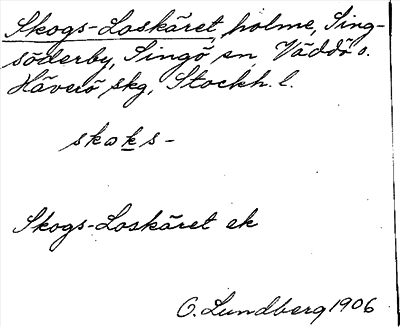 Skogs-Loskäret, holme, Sing-
söderby, Singö sn, Väddö o.
Häverö skg, Stockh. l.
skoks-
Skogs-Loskäret ek
O. Lundberg 1906